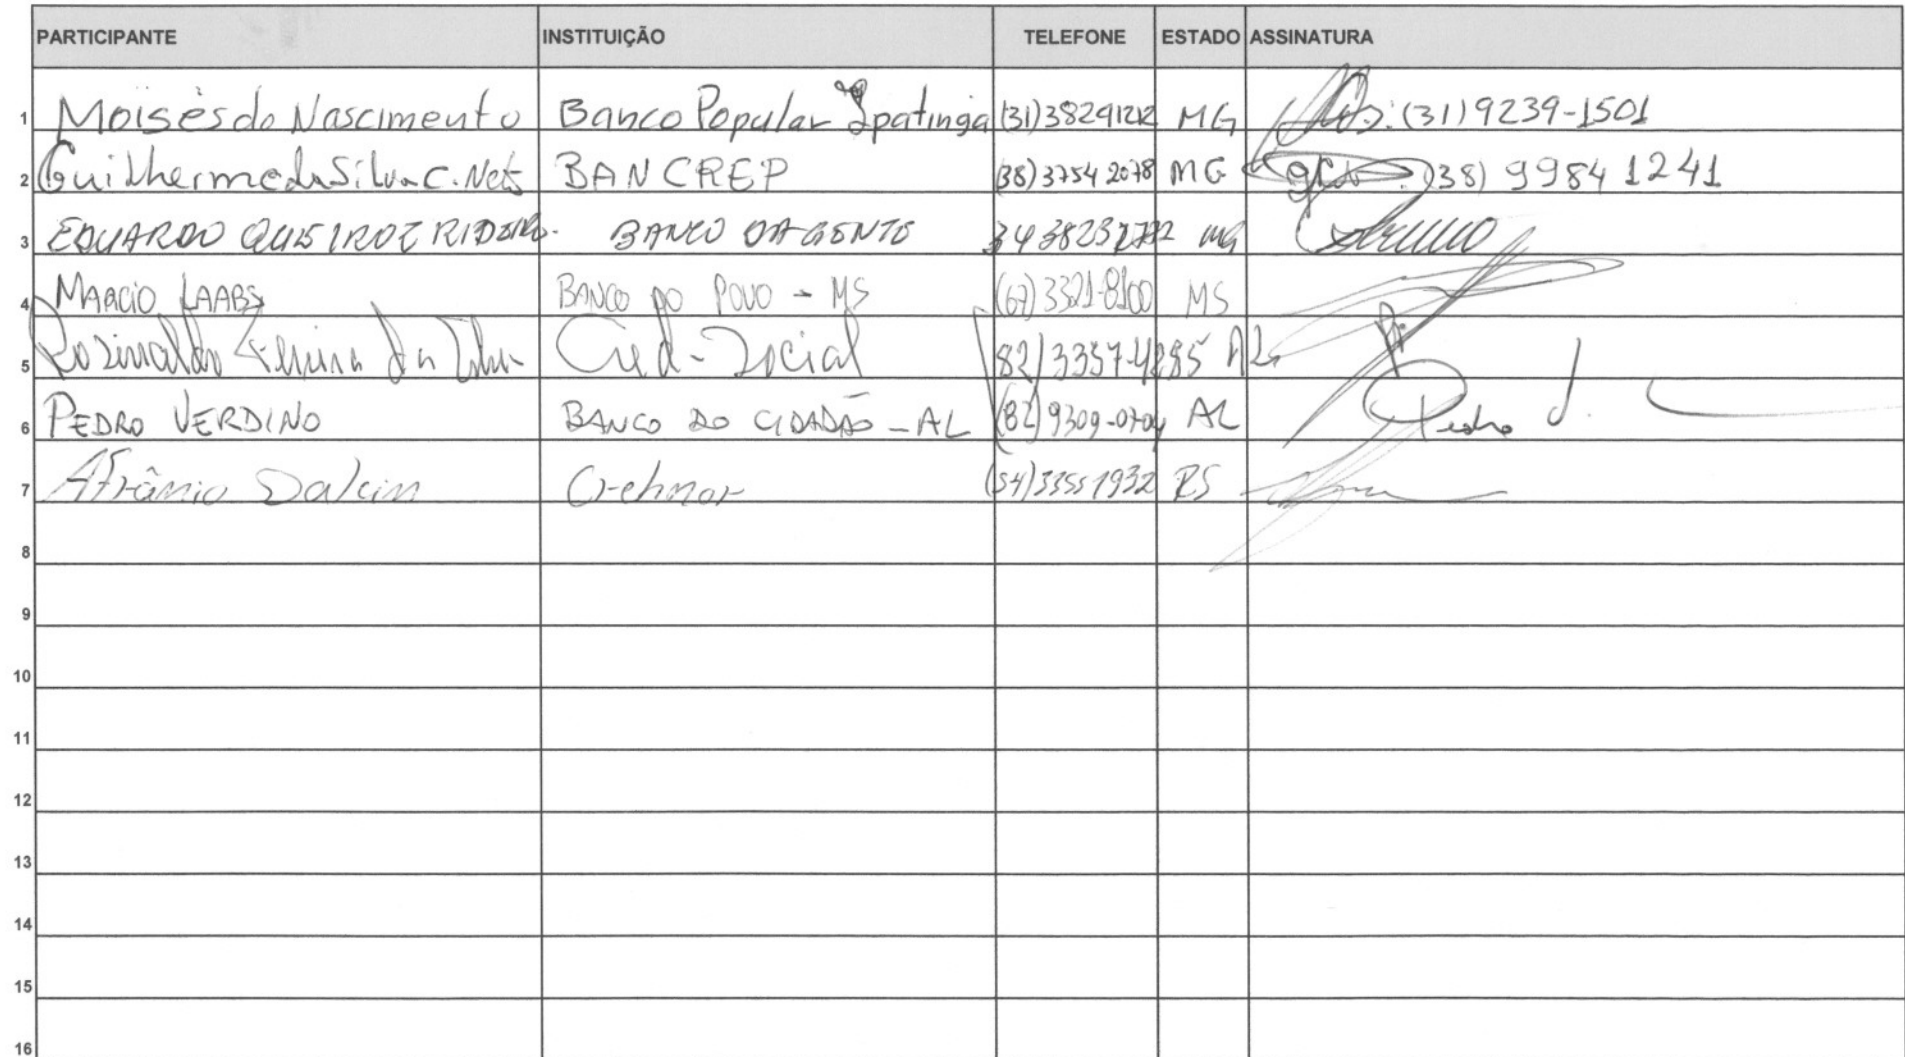 PARTICIPANTE INSTITUIÇÃO TELEFONE ESTADO ASSINATURA
1 Moisés do Nascimento Banco Popular Ipatinga (31)38291212 MG (31)9239-1501
2 Guilherme da Silva C. Neto BANCREP (38)3754 2078 MG (38) 9984 1241
3 EDUARDO QUEIROZ RIBEIRO BANCO DA GENTE MG
4 MARCIO LAABS BANCO DO POVO - MS (67)3321-8100 MS
5 Rozinaldo Ferreira da Silva Cred-Social 82)3357-4285 AL
6 PEDRO VERDINO BANCO DO CIDADÃO - AL (82)9309-0704 AL Pedro J.
7 Afrânio Dalcin Crehnor (54)33551932 RS
8
9
10
11
12
13
14
15
16